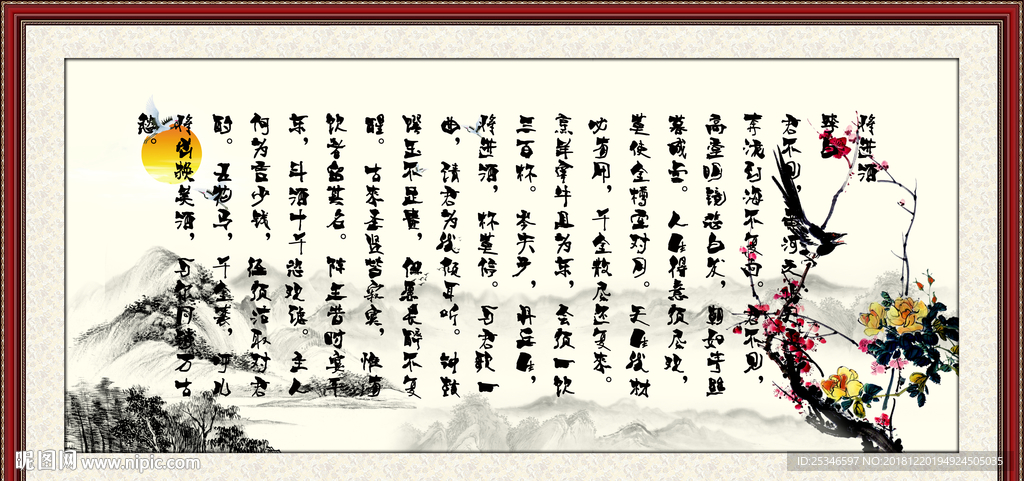 将进酒
李白
君不见,黄河之水天上来,
奔流到海不复回。君不见,
高堂明镜悲白发,朝如青丝
暮成雪。人生得意须尽欢,
莫使金樽空对月。天生我材
必有用,千金散尽还复来。
烹羊宰牛且为乐,会须一饮
三百杯。岑夫子,丹丘生,
将进酒,杯莫停。与君歌一
曲,请君为我倾耳听。钟鼓
馔玉不足贵,但愿长醉不复
醒。古来圣贤皆寂寞,惟有
饮者留其名。陈王昔时宴平
乐,斗酒十千恣欢谑。主人
何为言少钱,径须沽取对君
酌。五花马,千金裘,呼儿
将出换美酒,与尔同销万古
愁。
昵图网 www.nipic.com
ID:25346597 NO:20181220194924505035